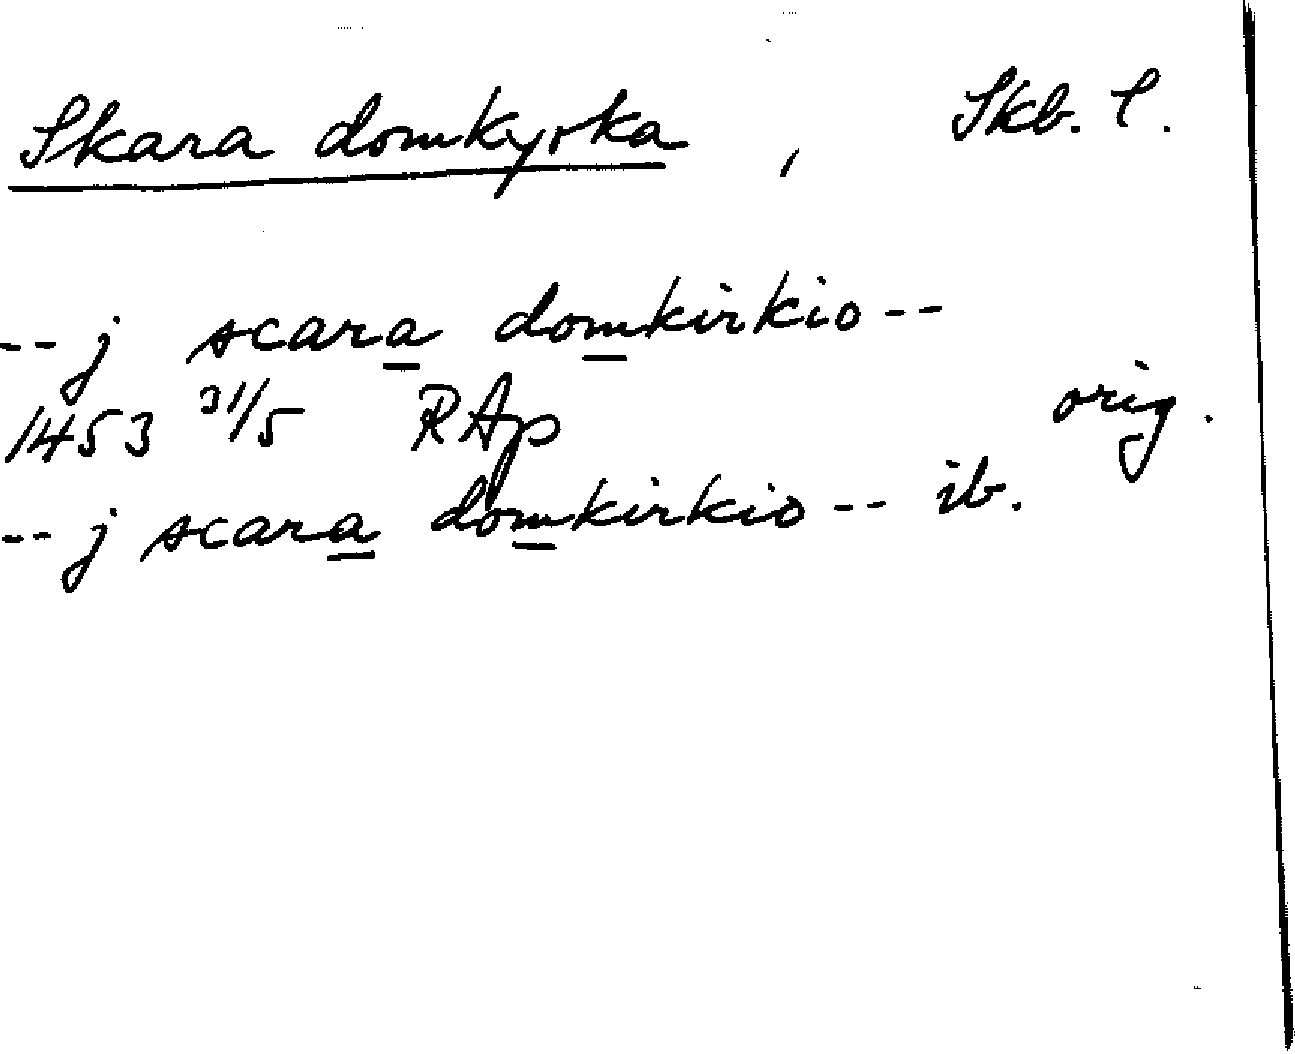 Skara domkyrka, Skb. l.
-- j scara domkirkio --
1453 31/5 RAp orig.
-- j scara domkirkio -- ib.